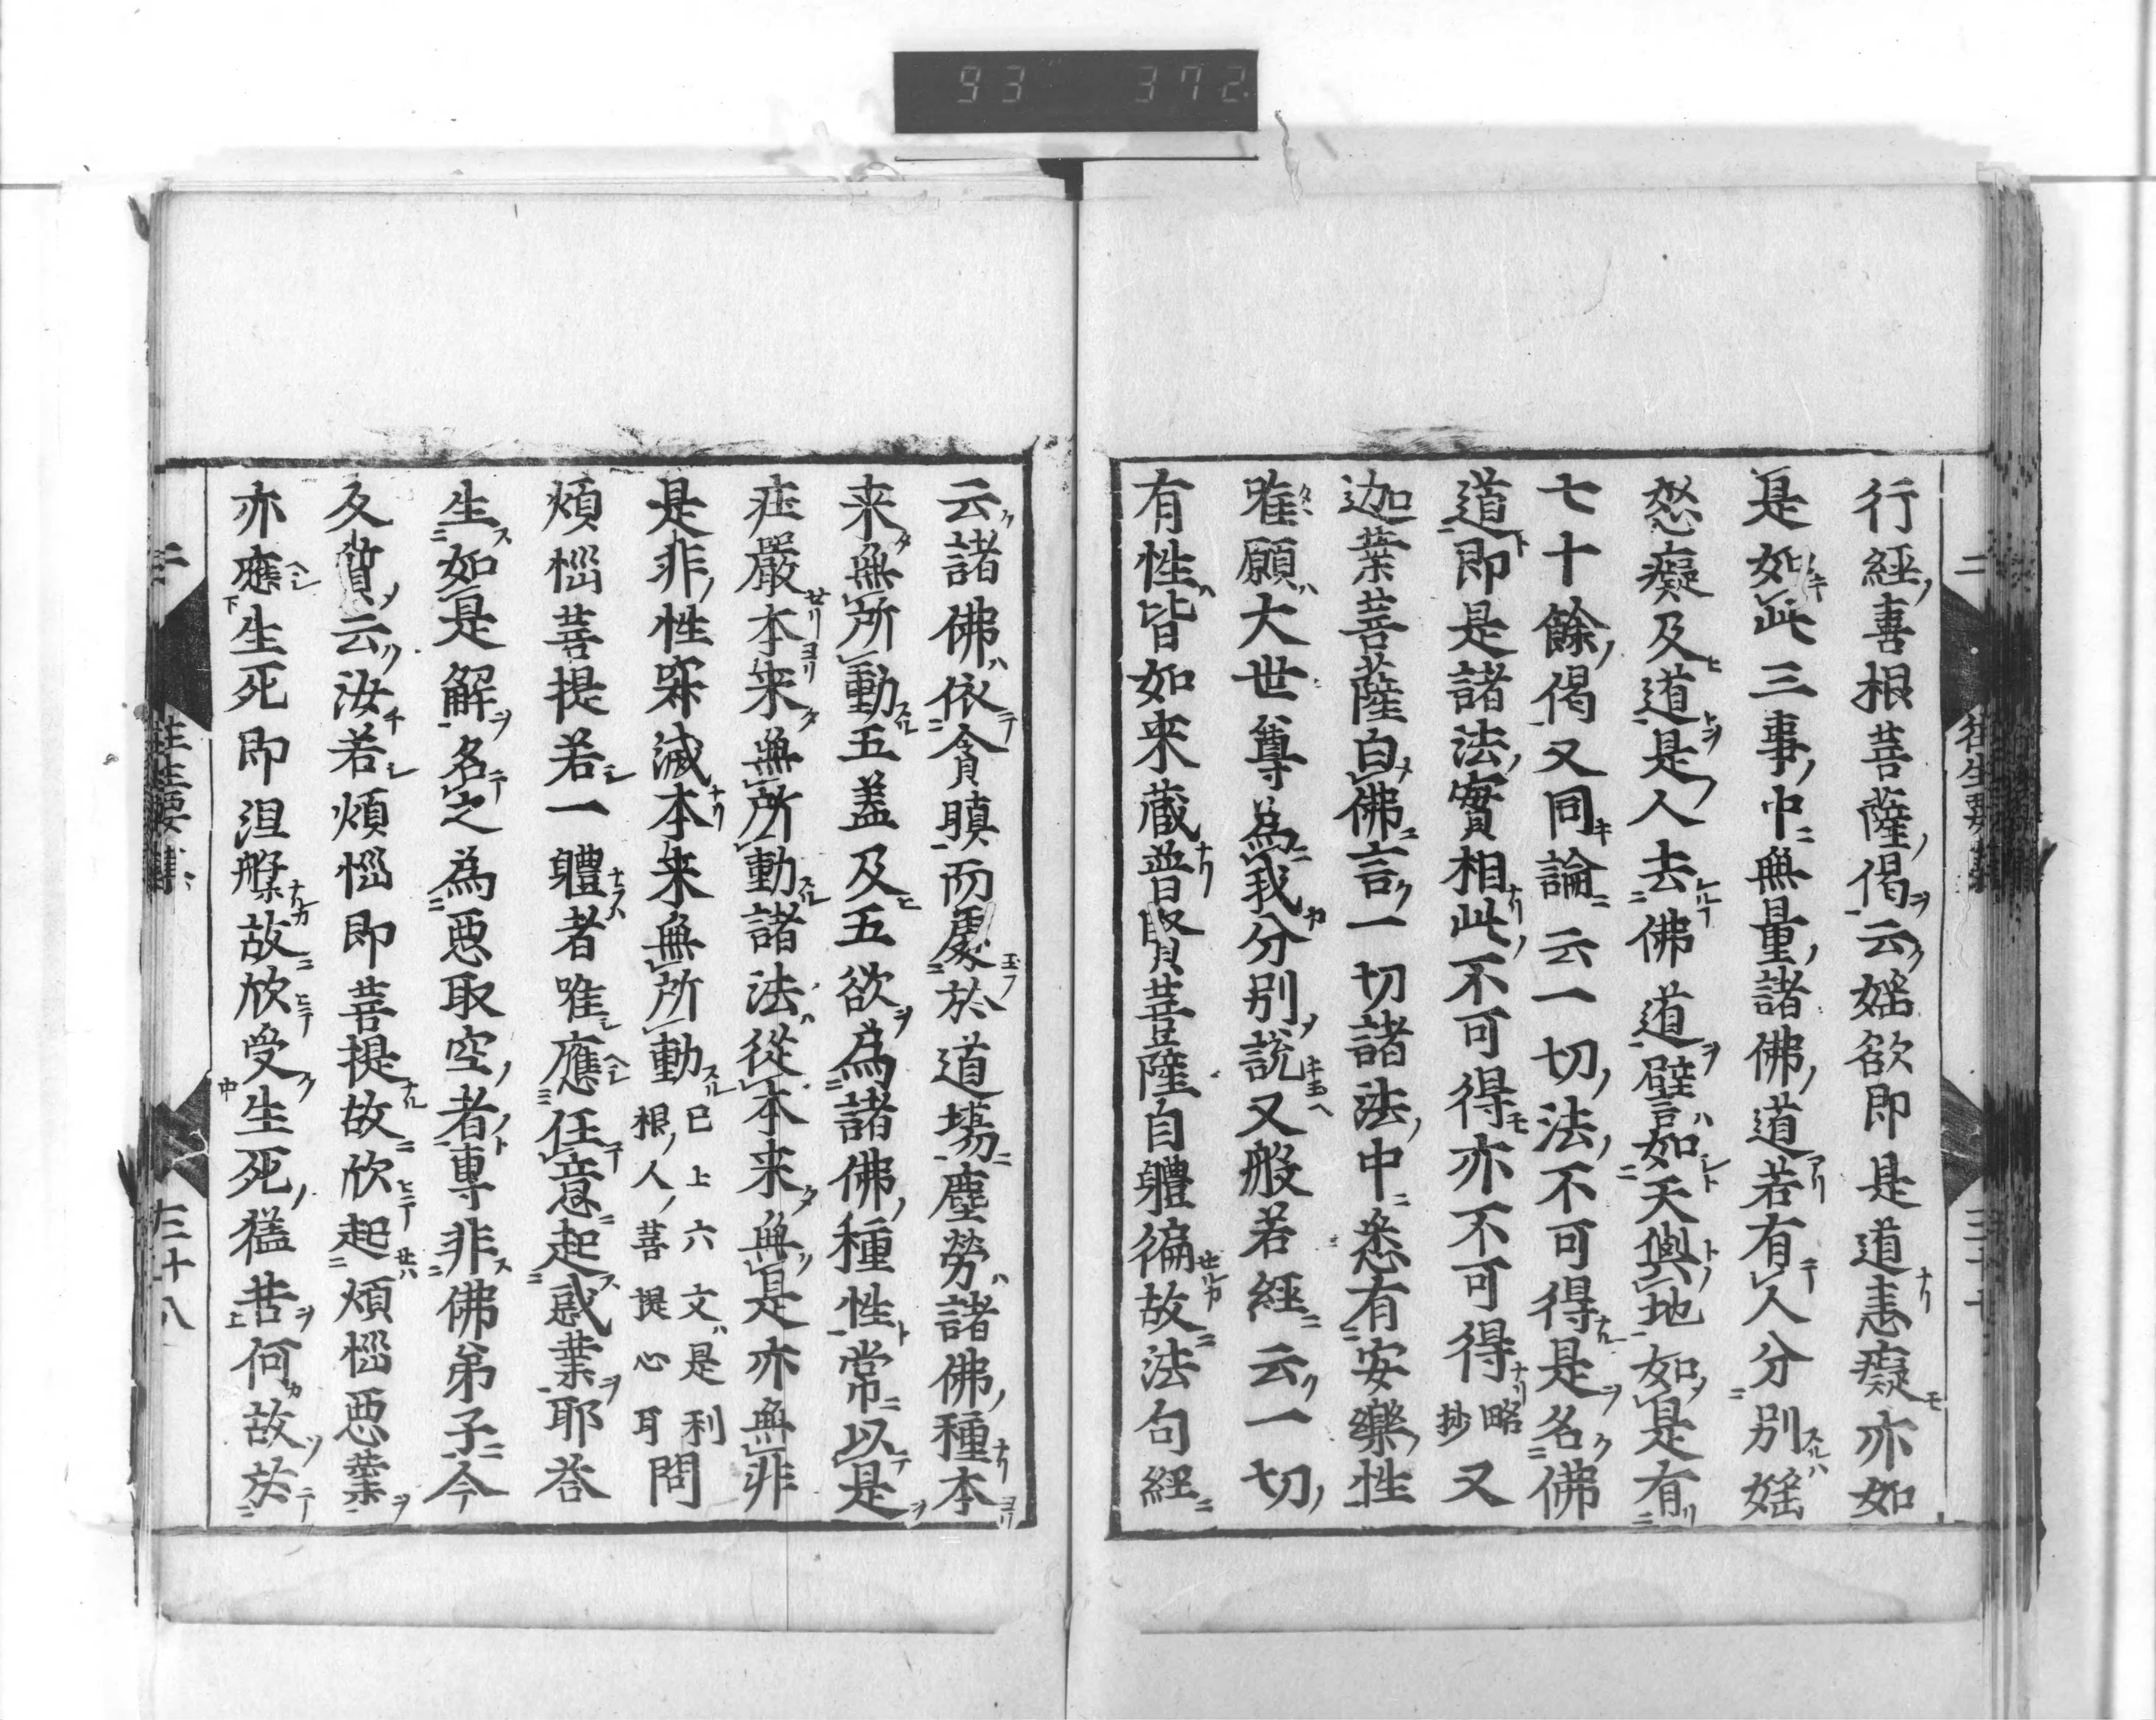 93 372
行經喜根菩薩偈云婬欲即是道恚癡亦如
是如此三事中無量諸佛道若有人分別婬
怒癡及道是人去佛道譬如天與地如是有
七十餘偈又同論云一切法不可得是名佛
道即是諸法實相此不可得亦不可得略抄又
迦葉菩薩白佛言一切諸法中悉有安樂性
唯願大世尊為我分別說又般若經云一切
有性皆如来蔵普賢菩薩自軆徧故法句經
云諸佛依貪瞋而處於道場塵勞諸佛種本
来無所動五盖及五欲為諸佛種性常以是
庄嚴本来無所動諸法從本来無是亦無非
是非性寂滅本来無所動已上六文是利根人菩提心耳問
煩惱菩提若一軆者唯應任意起惑業耶荅
生如是解名之為惡取空者專非佛弟子今
反質云汝若煩惱即菩提故欣起煩惱惡業
亦應生死即涅槃故欣受生死猛苦何故於
二 往生要集
三十八